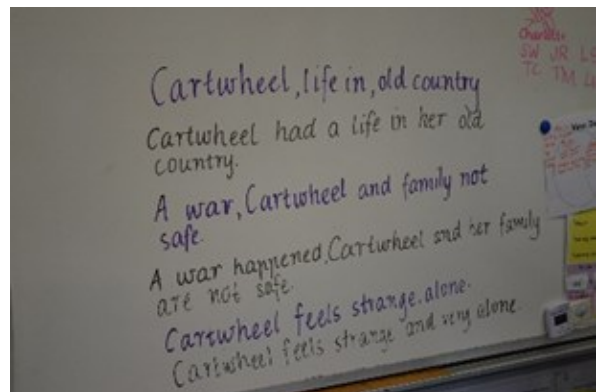 Cartwheel, life in, old country
Cartwheel had a life in her old
country.
A war, Cartwheel and family not
safe.
A war happened, Cartwheel snd her family
are not safe.
Cartwheel feels strange. alone.
Cartwheel feels strange and very alone.
SW JR
TC TM